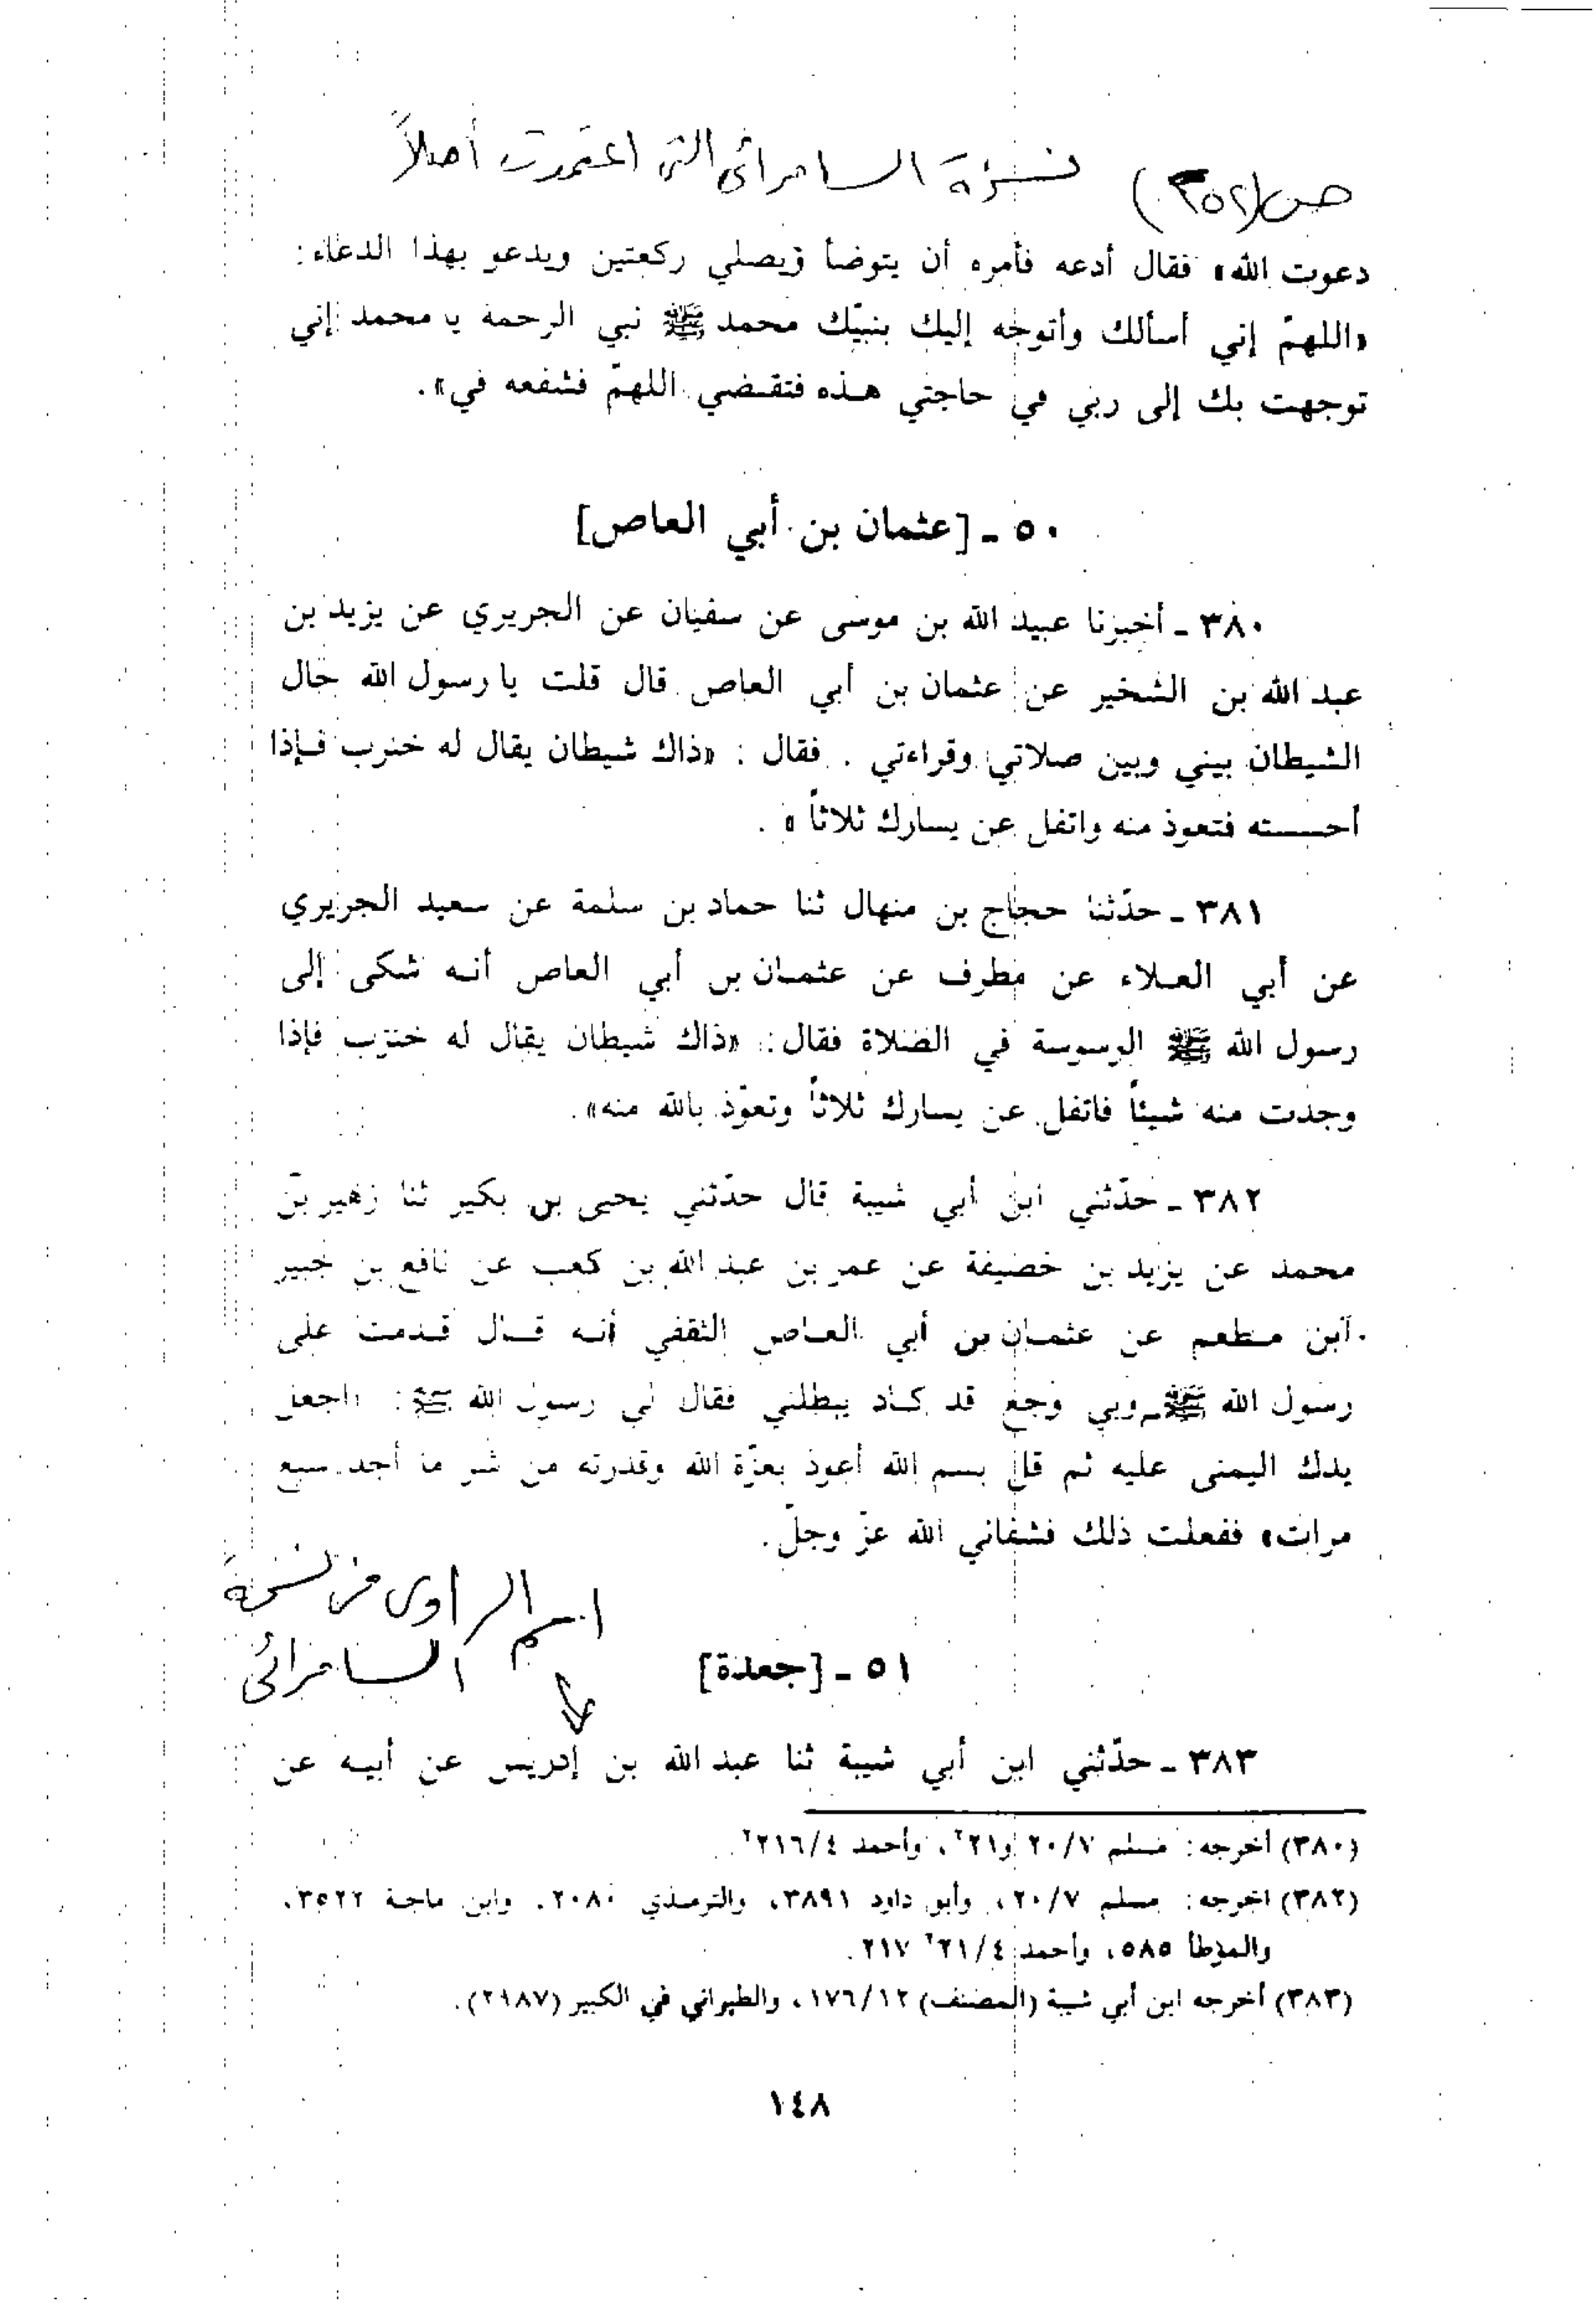 ص (٣٥٢) نسخة السامرائى التى اعتمدت أصلاً
دعوت الله» فقال أدعه فأمره أن يتوضأ ويصلي ركعتين ويدعو بهذا الدعاء:
«اللهمّ إني أسألك وأتوجه إليك بنبيّك محمد ﷺ نبي الرحمة يا محمد إني
توجهت بك إلى ربي في حاجتي هذه فتقضي اللهمّ فشفعه في».
٥٠ - [عثمان بن أبي العاص]
٣٨٠ - أخبرنا عبيد الله بن موسى عن سفيان عن الجريري عن يزيد بن
عبد الله بن الشخير عن عثمان بن أبي العاص قال قلت يا رسول الله حال
الشيطان بيني وبين صلاتي وقراءتي . فقال : «ذاك شيطان يقال له خنزب فإذا
أحسسته فتعوذ منه واتفل عن يسارك ثلاثاً» .
٣٨١ - حدّثنا حجاج بن منهال ثنا حماد بن سلمة عن سعيد الجريري
عن أبي العلاء عن مطرف عن عثمان بن أبي العاص أنه شكى إلى
رسول الله ﷺ الوسوسة في الصلاة فقال: «ذاك شيطان يقال له خنزب فإذا
وجدت منه شيئاً فاتفل عن يسارك ثلاثاً وتعوّذ بالله منه».
٣٨٢ - حدّثني ابن أبي شيبة قال حدّثني يحيى بن بكير ثنا زهير بن
محمد عن يزيد بن خصيفة عن عمر بن عبد الله بن كعب عن نافع بن جبير
ابن مطعم عن عثمان بن أبي العاص الثقفي أنه قال قدمت على
رسول الله ﷺ وبي وجع قد كاد يبطلني فقال لي رسول الله ﷺ: «اجعل
يدك اليمنى عليه ثم قل بسم الله أعوذ بعزّة الله وقدرته من شر ما أجد سبع
مرات» ففعلت ذلك فشفاني الله عزّ وجلّ.
اسم الراوى من نسخة
السامرائى
٥١ - [جعدة]
٣٨٣ - حدّثني ابن أبي شيبة ثنا عبد الله بن إدريس عن أبيه عن
(٣٨٠) أخرجه: مسلم ٢٠/٧ و٢١، وأحمد ٢١٦/٤.
(٣٨٢) أخرجه: مسلم ٢٠/٧، وأبو داود ٣٨٩١، والترمذي ٢٠٨٠، وابن ماجة ٣٥٢٢،
والموطأ ٥٨٥، وأحمد ٢١/٤ ٢١٧.
(٣٨٣) أخرجه ابن أبي شيبة (المصنف) ١٧٦/١٢، والطبراني في الكبير (٢١٨٧).
١٤٨